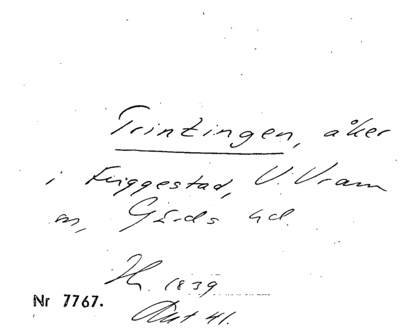 Trintzingen, åker
i Friggestad, V. Vram
sn, Gärds hd.
H. 1839
Akt 41.
Nr 7767.